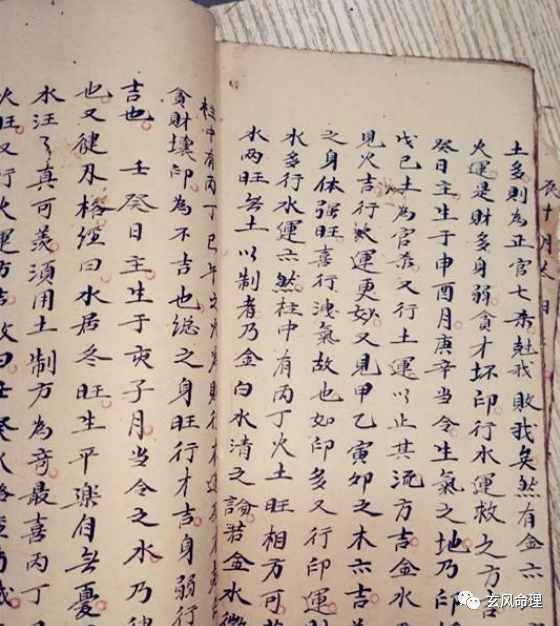 土多則為正官七杀尅我敗我矣然有金六
火運是財多身弱貪才坏印行水運救之方吉
癸日主生于申酉月庚辛当令生氣之地乃印
戊己土為官杀又行土運以止其流方吉金水
見火吉行火運更妙又見甲乙寅卯之木六吉
之身体强旺喜行洩氣故也如印多又行印運財
水多行水運六然柱中有丙丁火土旺相方可
水两旺無土以制者乃金白水清之論若金水微
柱中有丙丁巳午之火為財行木運
貪財壞印為不吉也総之身旺行才吉身弱行
吉也 壬癸日主生于亥子月当令之水乃徤
也又徤及格經曰水居冬旺生平樂自無憂
水汪々真可羡須用土制方為奇最喜丙丁
火旺又行火運方吉故曰壬癸水
玄风命理